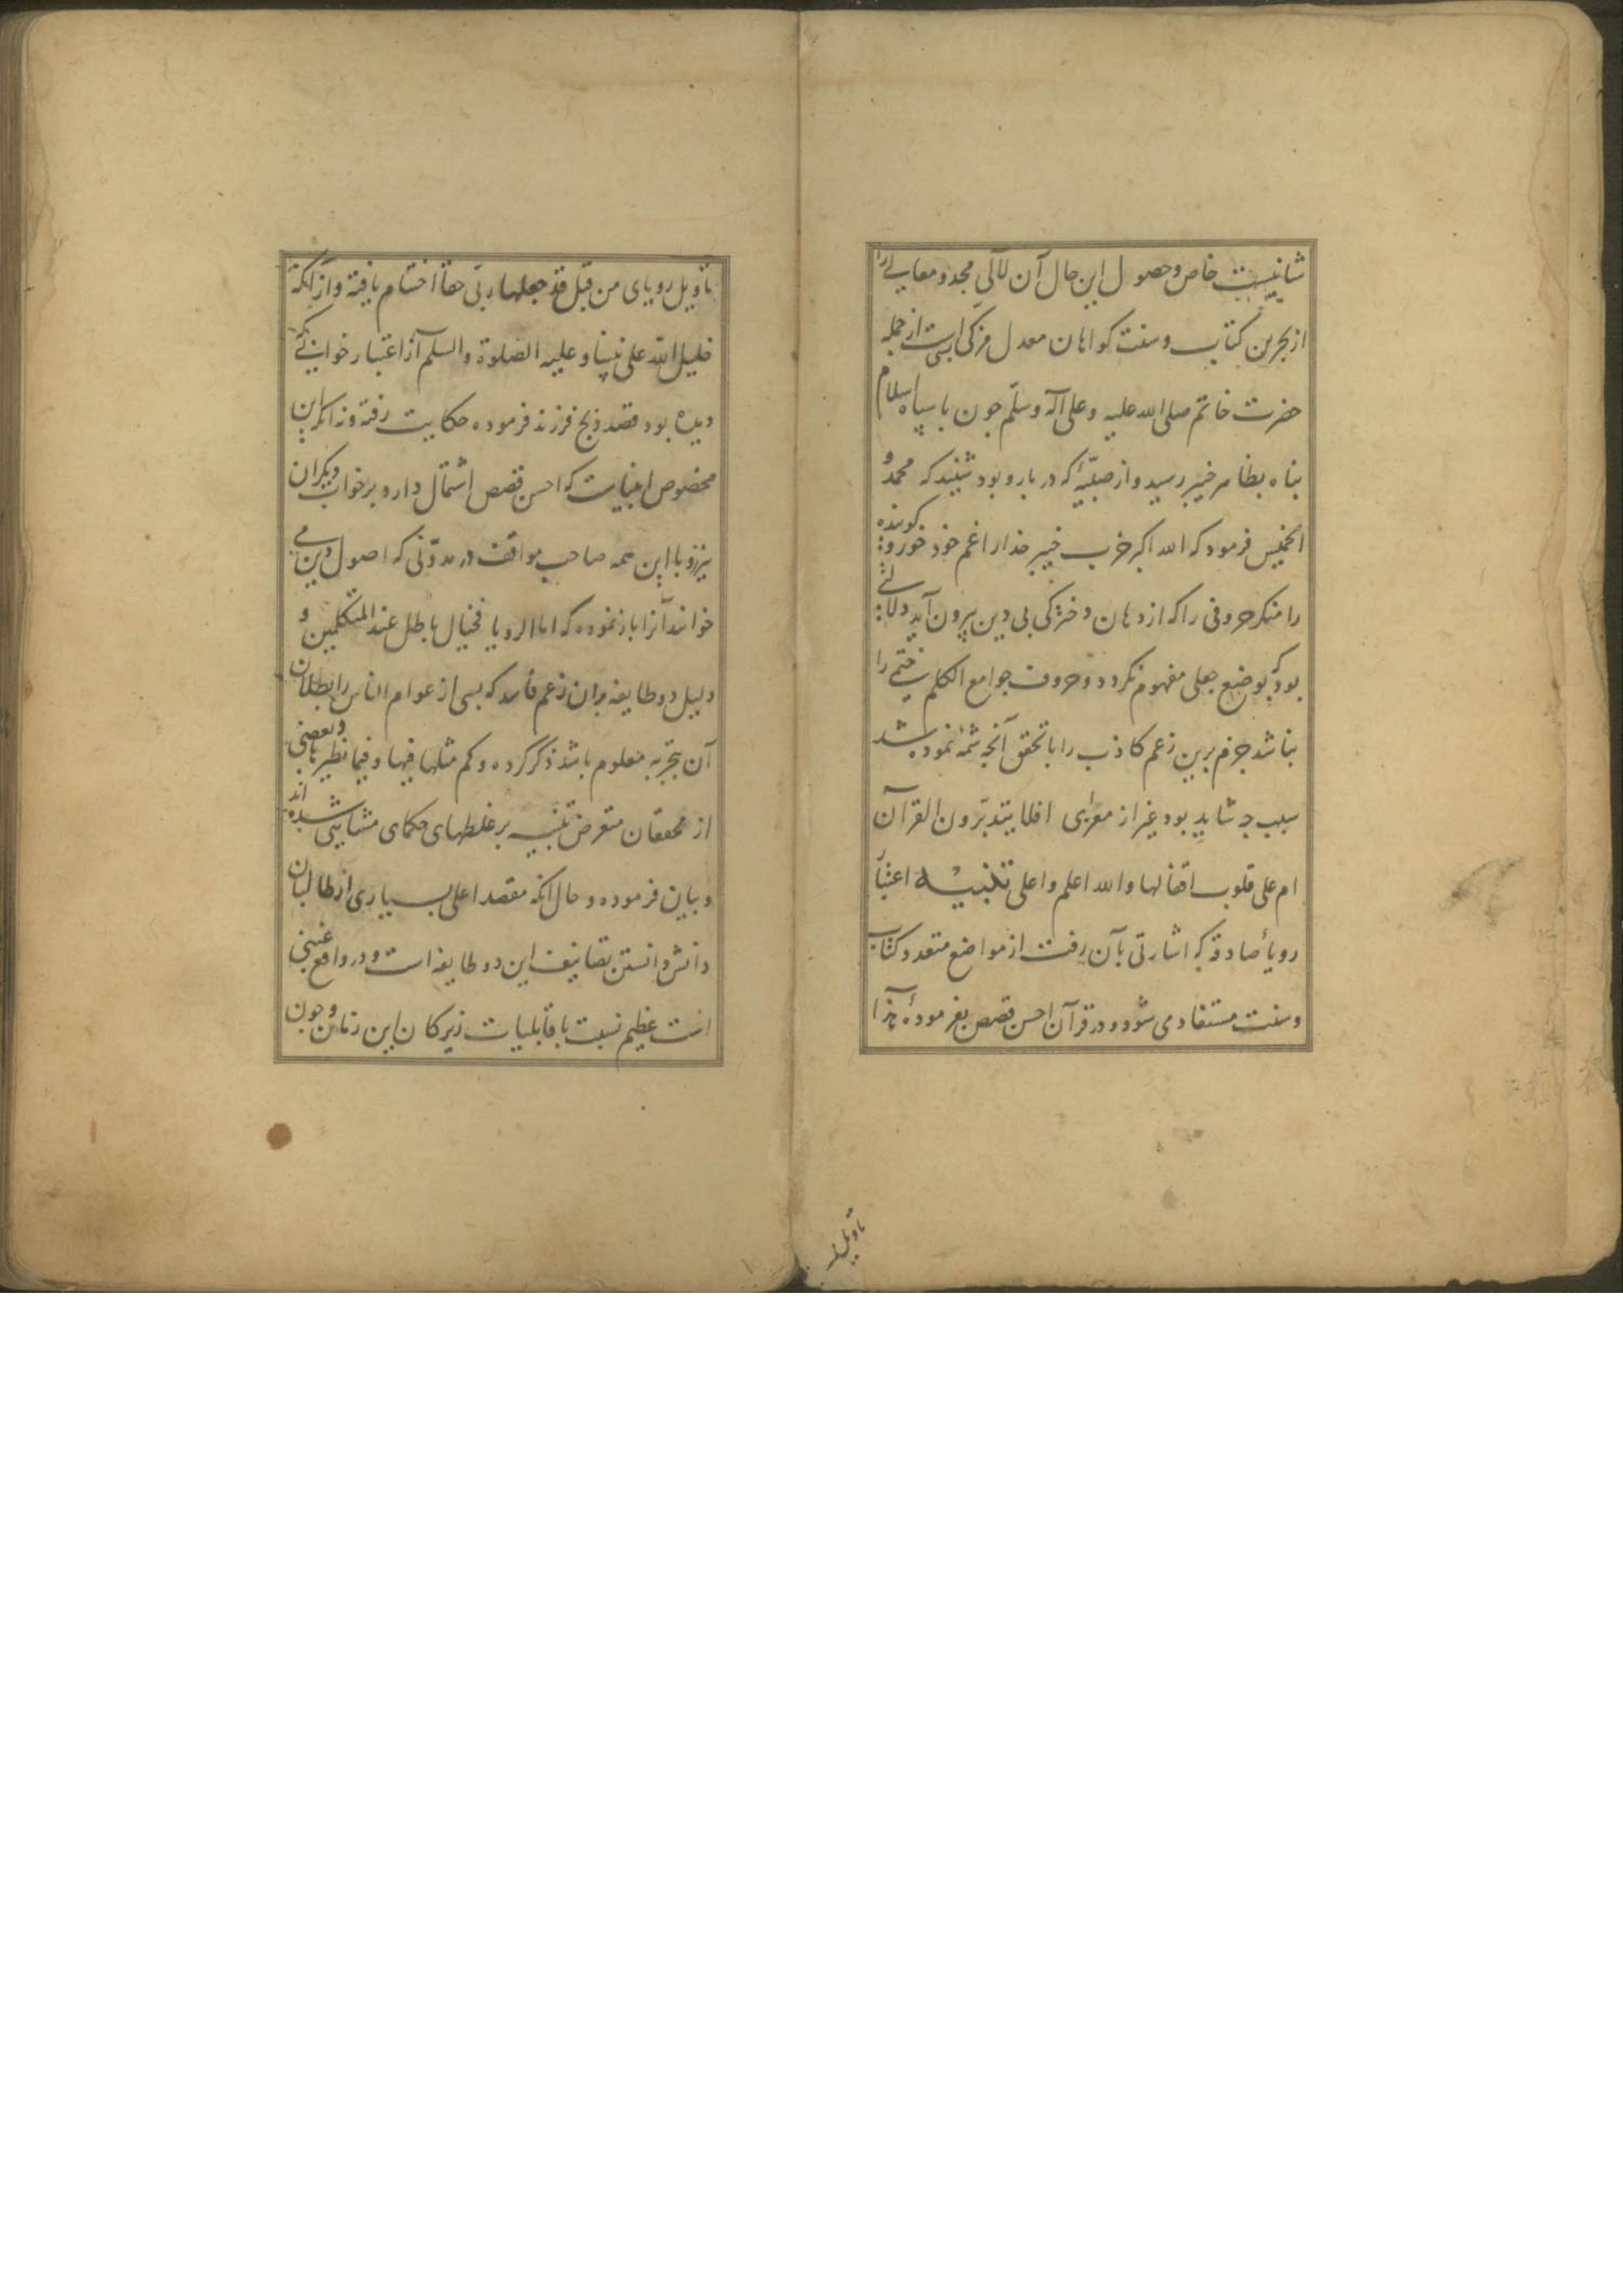 شانیست خاص وحصول این حال آن لآلی مجد و معالی را
از بحرین کتاب وسنت کواهان معدل مزکی است از جمله
حضرت خاتم صلی الله علیه وعلی آله وسلّم چون با سپاه اسلام
پناه بظاهر خیبر رسید واز صبیّهٔ که در بارو بود شنید که محمد و
الخمیس فرمود که الله اکبر خرب خیبر خدارا غم خود خور و کوینده
را منکر حروفی را که از دهان دخترکی بی دین بیرون آید دلالتی
بود که بوضع جعلی مفهوم نکردد وحروف جوامع الکلم ختم را
نباشد جزم برین زعم کاذب را با تحقق آنچه شمهٔ نموده شد
سبب چه شاید بود غیر از معرای افلا یتدبّرون القرآن
ام علی قلوب اقفالها والله اعلم واعلی تنبیه اعتبار
رویأ صادقه که اشارتی بآن رفت از مواضع متعدد کتاب
وسنت مستفاد می شود ودر قرآن احسن قصص بفرمودهٔ هذا
تاویل
تاویل رویای من قبل قد جعلها ربّی حقا اختتام یافته واز آنکه
خلیل الله علی نبینا وعلیه الصلوة والسلم از اعتبار خوابی که
دیده بود قصد ذبح فرزند فرموده حکایت رفته ونه اکر این
مخصوص انبیاست که احسن قصص اشتمال دارد بر خواب دیکران
نیز وبا این همه صاحب مواقف در مدوّنی که اصول دین می
خوانند آنرا باز نموده که اما الرویا فخیال باطل عند المتکلمین و
دلیل دو طایفه بران زعم فاسد که بسی از عوام الناس را بطلان
آن بتجربه معلوم باشد ذکر کرده وکم مثلها فیها وفیما نظیرها وبعضی
از محققان متعرض تنبیه بر غلطهای حکمای مشایی شده اند
وبیان فرموده وحال آنکه مقصد اعلی بسیاری از طالبان
دانش دانستن تصانیف این دو طایفه است ودر واقع غبنی
است عظیم نسبت با قابلیات زیرکان این زمان وچون